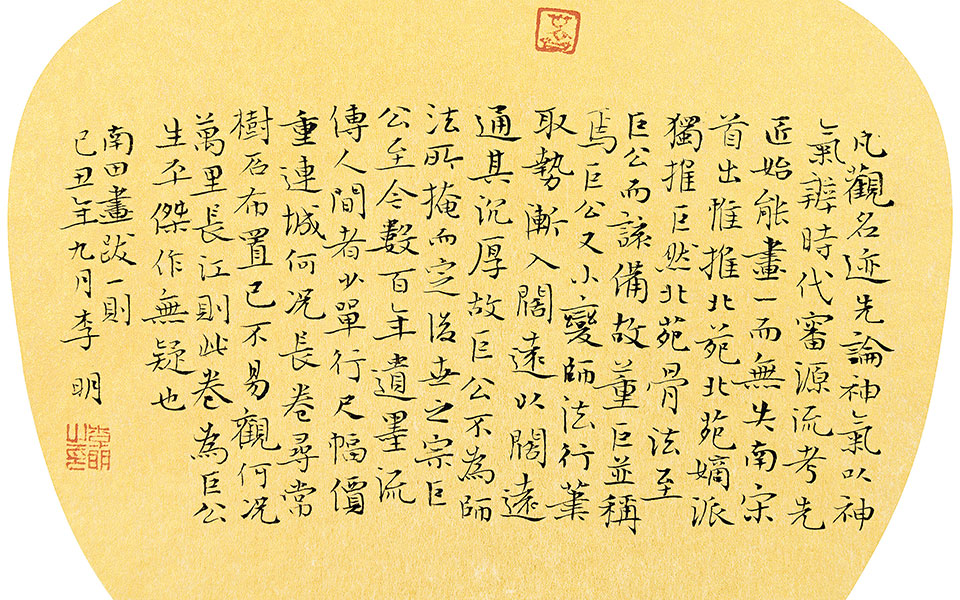 凡觀名迹先論神氣以神
氣辨時代審源流考先
匠始能畫一而無失南宋
首出惟推北苑北苑嫡派
獨推巨然北苑骨法至
巨公而該備故董巨並稱
焉巨公又小變師法行筆
取勢漸入闊遠以闊遠
通其沉厚故巨公不為師
法所掩而定後世之宗巨
公至今數百年遺墨流
傳人間者少單行尺幅價
重連城何況長卷尋常
樹石布置已不易觀何況
萬里長江則此卷為巨公
生平傑作無疑也
南田畫跋一則
己丑年九月李明
李明之印